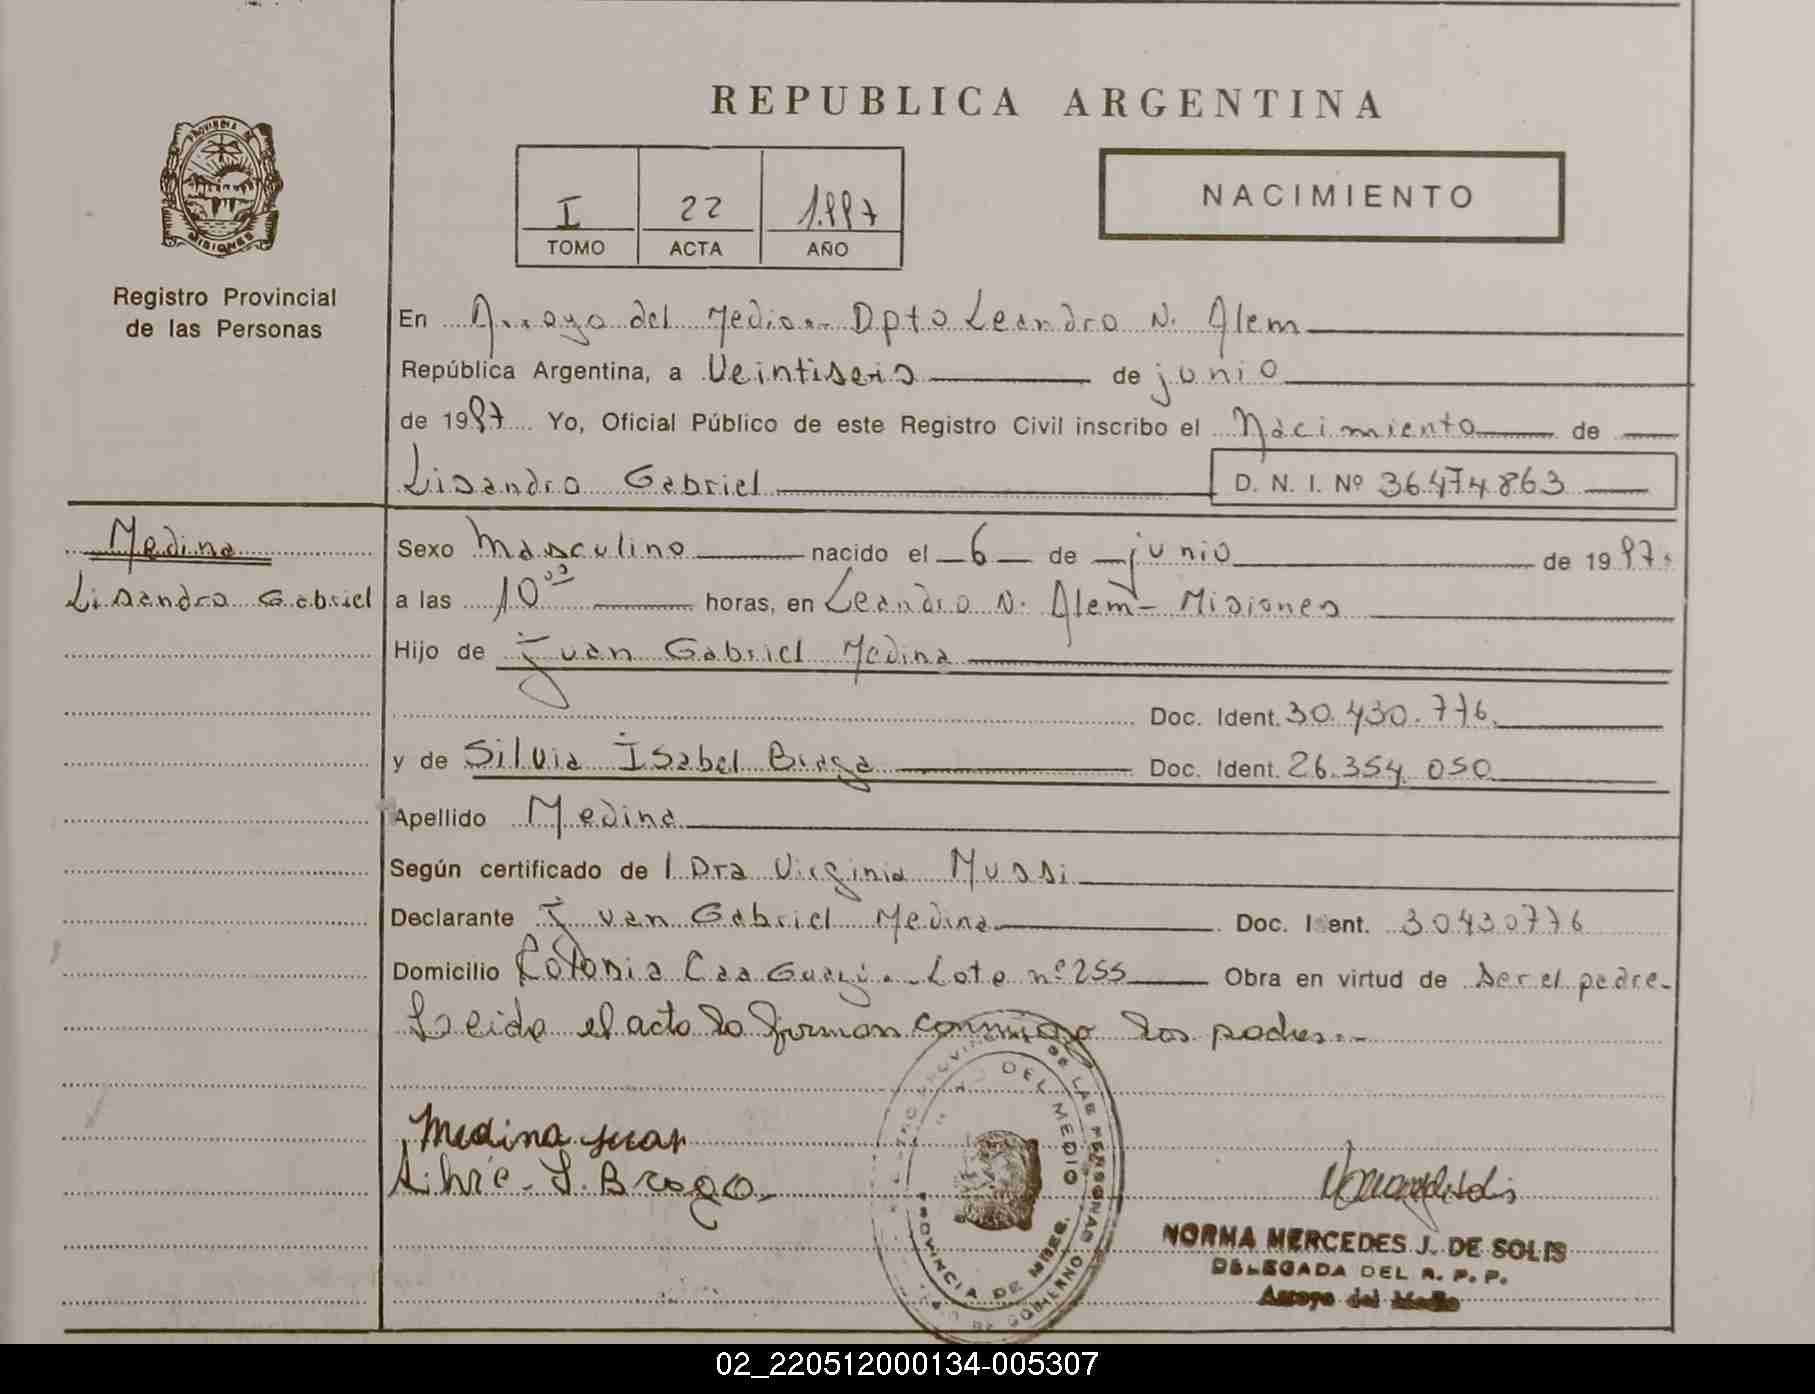 REPUBLICA ARGENTINA
PROVINCIA DE
MISIONES
Registro Provincial
de las Personas
I 22 1.997
TOMO ACTA AÑO
NACIMIENTO
En Arroyo del Medio.. Dpto Leandro N. Alem
República Argentina, a Veintiseis de junio
de 1997 Yo, Oficial Público de este Registro Civil inscribo el Nacimiento de
Lisandro Gabriel D. N. I. Nº 36.474.863
Medina
Lisandro Gabriel
Sexo Masculino nacido el 6 de junio de 1997.
a las 10 horas, en Leandro N. Alem - Misiones
Hijo de Juan Gabriel Medina
Doc. Ident. 30.430.776.
y de Silvia Isabel Braga Doc. Ident. 26.354.050
Apellido Medina
Según certificado de l Dra Virginia Mussi
Declarante Juan Gabriel Medina Doc. Ident. 30430776
Domicilio Colonia Caa Guazú.. Lote nº 255 Obra en virtud de ser el padre-
Leida el acta la firman conmigo los padres.-
Medina Juan
Silvia. I. Braga.
PROVINCIAL DE LAS PERSONAS
DEL MEDIO
PROVINCIA DE MNES.
NORMA MERCEDES J. DE SOLIS
DELEGADA DEL R. P. P.
Arroyo del Medio
02_220512000134-005307